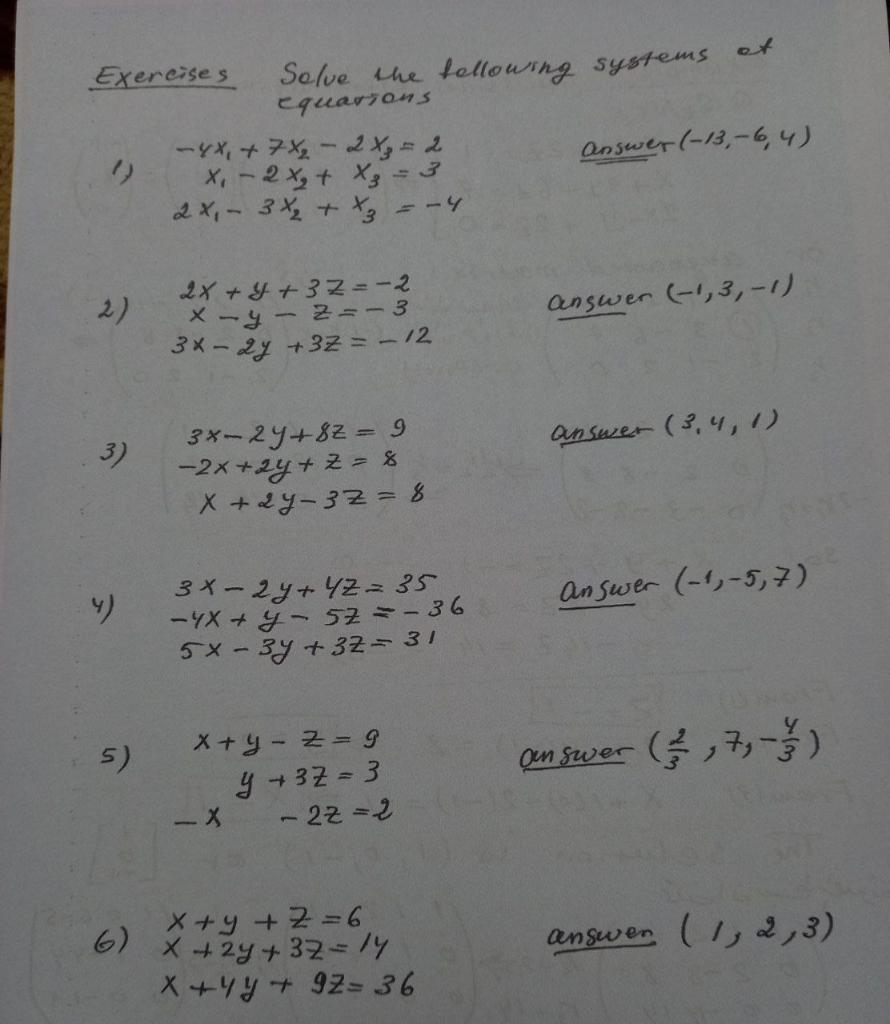 Exercises Solve the following systems of
equations
1) -4x₁ + 7x₂ - 2x₃ = 2 answer (-13, -6, 4)
x₁ - 2x₂ + x₃ = 3
2x₁ - 3x₂ + x₃ = -4
2) 2x + y + 3z = -2 answer (-1, 3, -1)
x - y - z = -3
3x - 2y + 3z = -12
3) 3x - 2y + 8z = 9 answer (3, 4, 1)
-2x + 2y + z = 8
x + 2y - 3z = 8
4) 3x - 2y + 4z = 35 answer (-1, -5, 7)
-4x + y - 5z = -36
5x - 3y + 3z = 31
5) x + y - z = 9 answer (2/3, 7, -4/3)
y + 3z = 3
-x - 2z = 2
6) x + y + z = 6 answer (1, 2, 3)
x + 2y + 3z = 14
x + 4y + 9z = 36